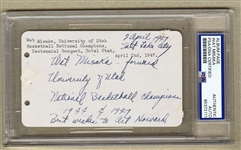 Wat Misaka, University of Utah
Basketball National Champions,
Centennial Banquet, Hotel Utah,
April 2nd, 1947.
2 April 1947
Salt Lake City
Wat Misaka - forward
University of Utah
National Basketball champions
1944 & 1947
Best wishes to Art Howard
AUTHENTIC